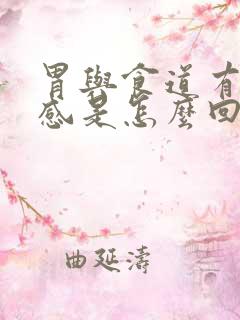 胃與食道有
感是怎麼回
曲延濤